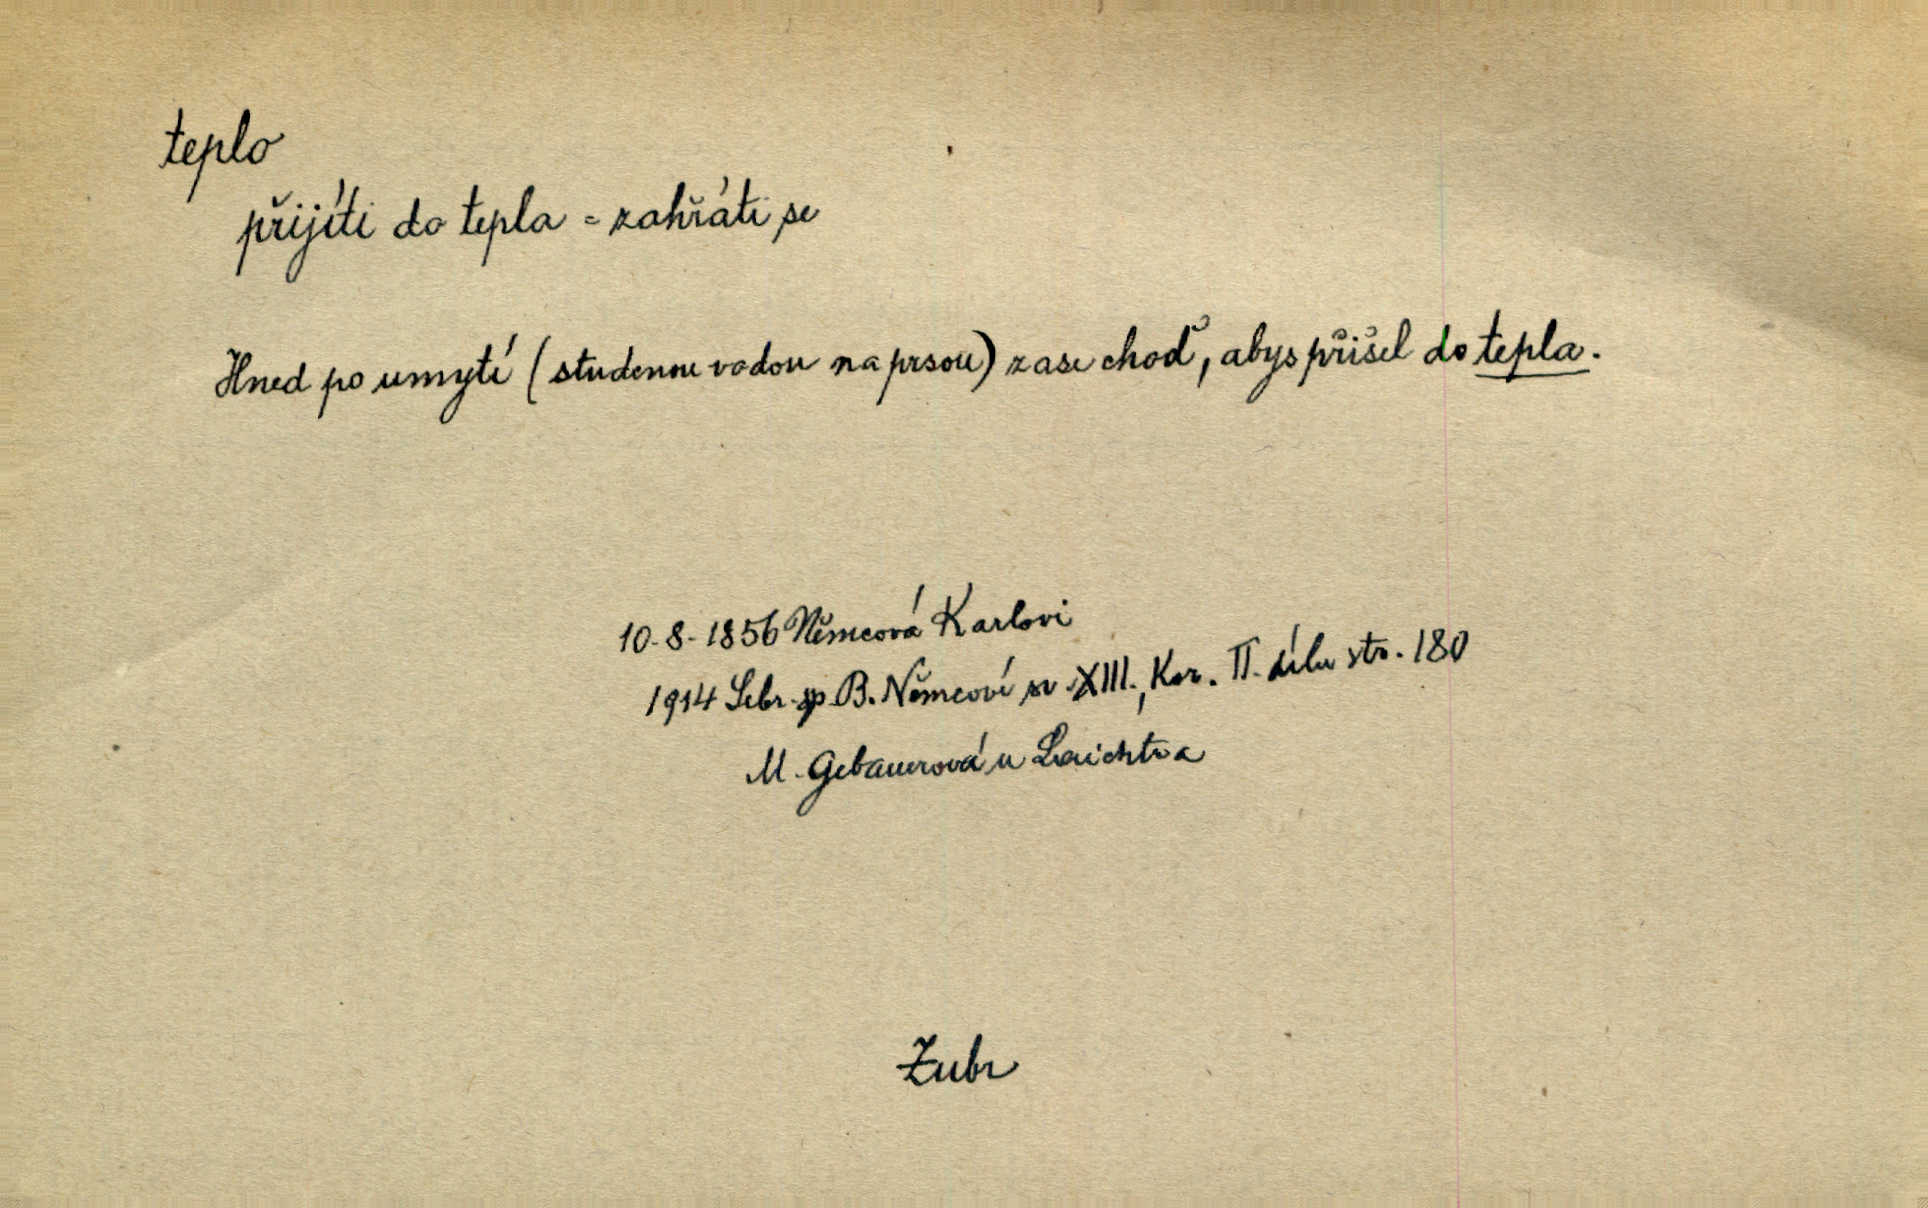 teplo
přijíti do tepla = zahřáti se
Hned po umytí (studenou vodou na prsou) zase choď, abys přišel do tepla.
10. 8. 1856 Němcová Karlovi
1914 Sebr. sp. B. Němcové sv. XIII., Kor. II. dílu str. 180
M. Gebauerová u Laichtra
Zubr